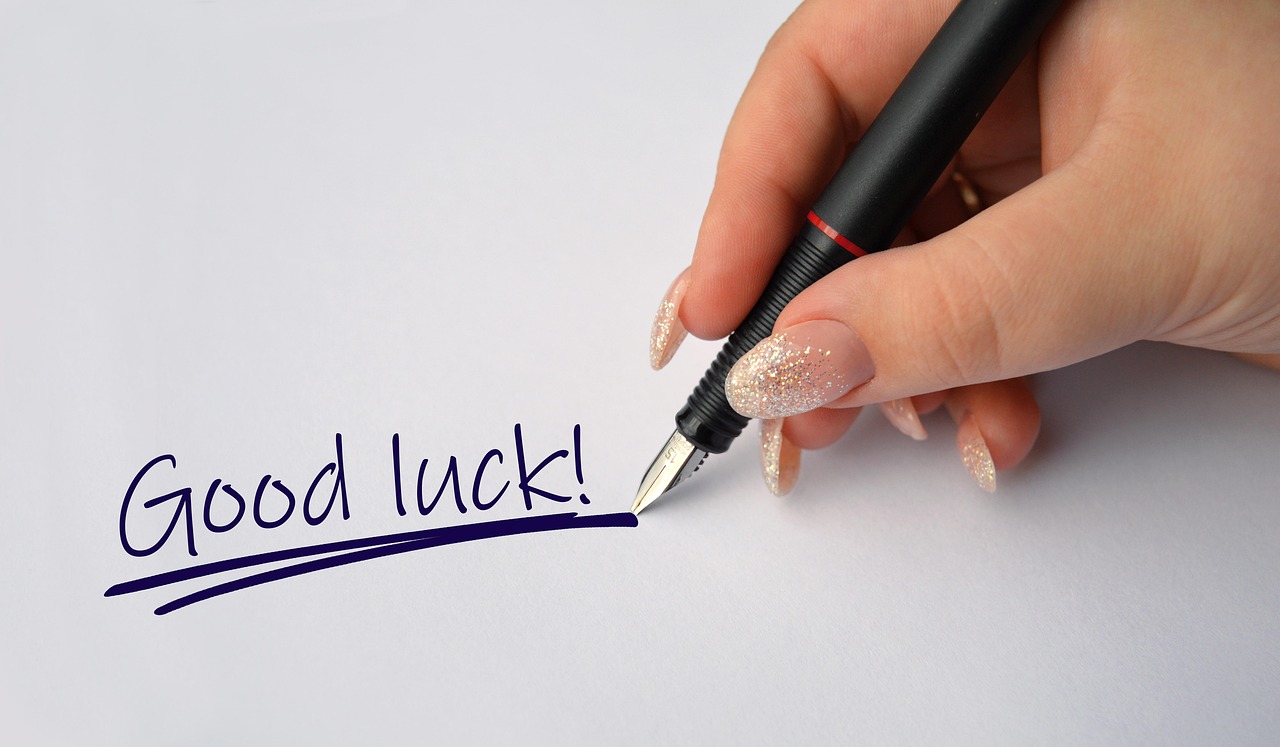 Good luck!